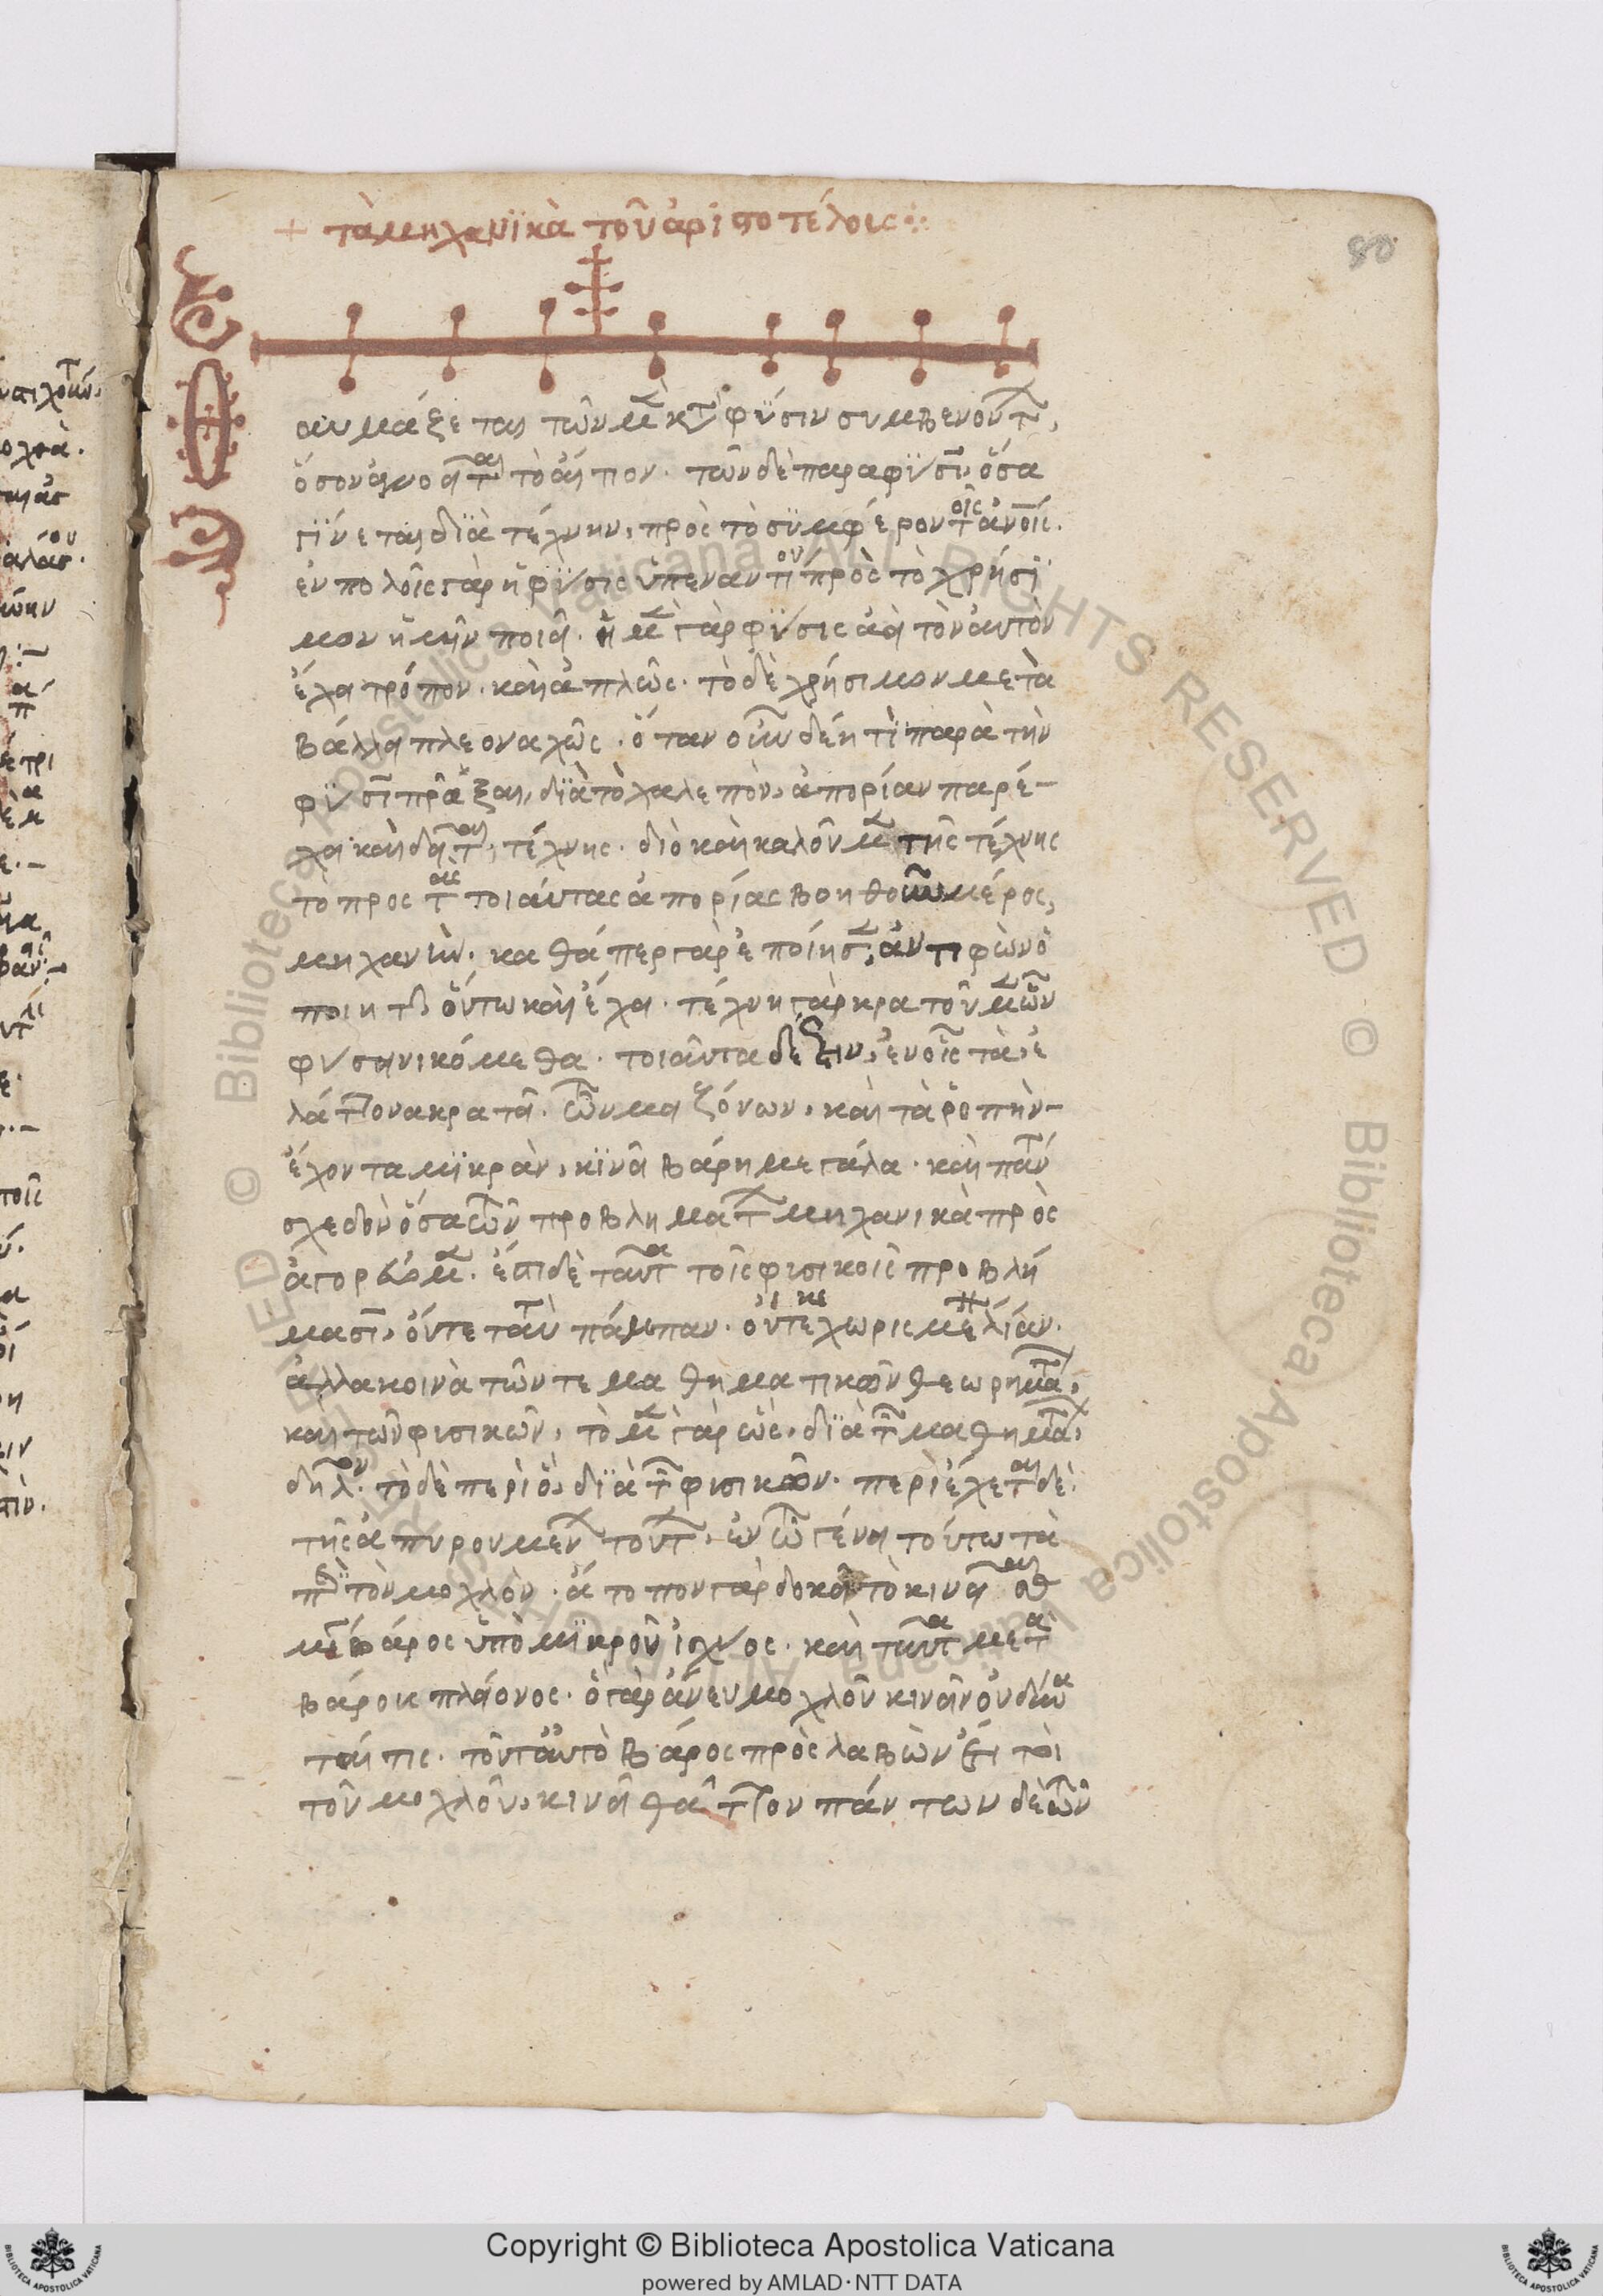 + τὰ μηχανϊκὰ τοῦ ἀριστοτέλους
80
Θαυμάζεται τῶν μὲν κατὰ φύσιν συμβενόντων,
ὅσον ἀγνοεῖται τὸ αἴτιον. τῶν δὲ παρα φύσιν, ὅσα
γΐνεται διὰ τέχνην, πρὸς τὸ συμφέρον τοῖς ἀνοις.
ἐν πολοῖς γὰρ ἡ φύσις ὑπεναντίον πρὸς τὸ χρήσϊ
μον ἡμῖν ποιεῖ. ἡ μὲν γὰρ φύσις ἀεὶ τὸν αὐτὸν
ἔχει τρόπον. καὶ ἁπλῶς. τὸ δὲ χρήσιμον μετὰ
βάλλει πλεοναχῶς. ὅταν οὖν δέη τϊ παρὰ τὴν
φύσιν πρᾶξαι, διὰ τὸ χαλεπὸν, ἀπορίαν παρέ-
χει καὶ δεῖται τέχνης. διὸ καὶ καλοῦμεν τῆς τέχνης
τὸ προς τὰς τοιαύτας ἀπορίας βοηθοῦν μέρος,
μηχανὴν. καθάπερ γὰρ ἐποίησεν ἀντιφῶν ὁ
ποιητὴς οὕτω καὶ ἔχει. τέχνη γὰρ κρατοῦμεν ὧν
φύσει νικόμεθα. τοιαῦτα δέ ἐστιν, ἐν οἷς τὰ, ἐ
λάττονα κρατεῖ. τῶν μειζόνων. καὶ τὰ ῥοπὴν-
ἔχοντα μϊκρὰν, κϊνεῖ βάρη μεγάλα. καὶ πάντα
σχεδὸν ὅσα τῶν προβλημάτων μηχανικὰ προς
ἀγορεύομεν. ἔστι δὲ ταῦτα τοῖς φισικοῖς προβλή
μασιν, οὔτε ταυτὰ πάμπαν. οὔτε κεχωρισμένα λίαν.
ἀλλα κοινὰ τῶν τε μαθηματικῶν θεωρημάτων,
καὶ τῶν φισικῶν, τὸ μὲν γὰρ ὡς, διὰ τῶν μαθημάτων,
δῆλον. τὸ δὲ περὶ ὃ, διὰ τῶν φισικῶν. περιέχεται δὲ
τῆς ἀπυρουμένων τούτων, ἐν τῶ γένει τούτω τὰ
περὶ τὸν μοχλὸν. ἄτοπον γὰρ δοκεῖ τὸ κινεῖσθαι
μέγα βάρος ὑπὸ μϊκροῦ ἰσχύος. καὶ ταῦτα μετὰ
βάρους πλείονος. ὃ γὰρ ἄνευ μοχλοῦ κινεῖν οὐ δύνα
ταί τις. τοῦτ αὐτὸ βάρος πρὸς λαβὼν ἔτι τὸ
τοῦ μοχλοῦ, κινεῖ θᾶττον πάντων δὲ τῶν
Copyright © Biblioteca Apostolica Vaticana
powered by AMLAD·NTT DATA